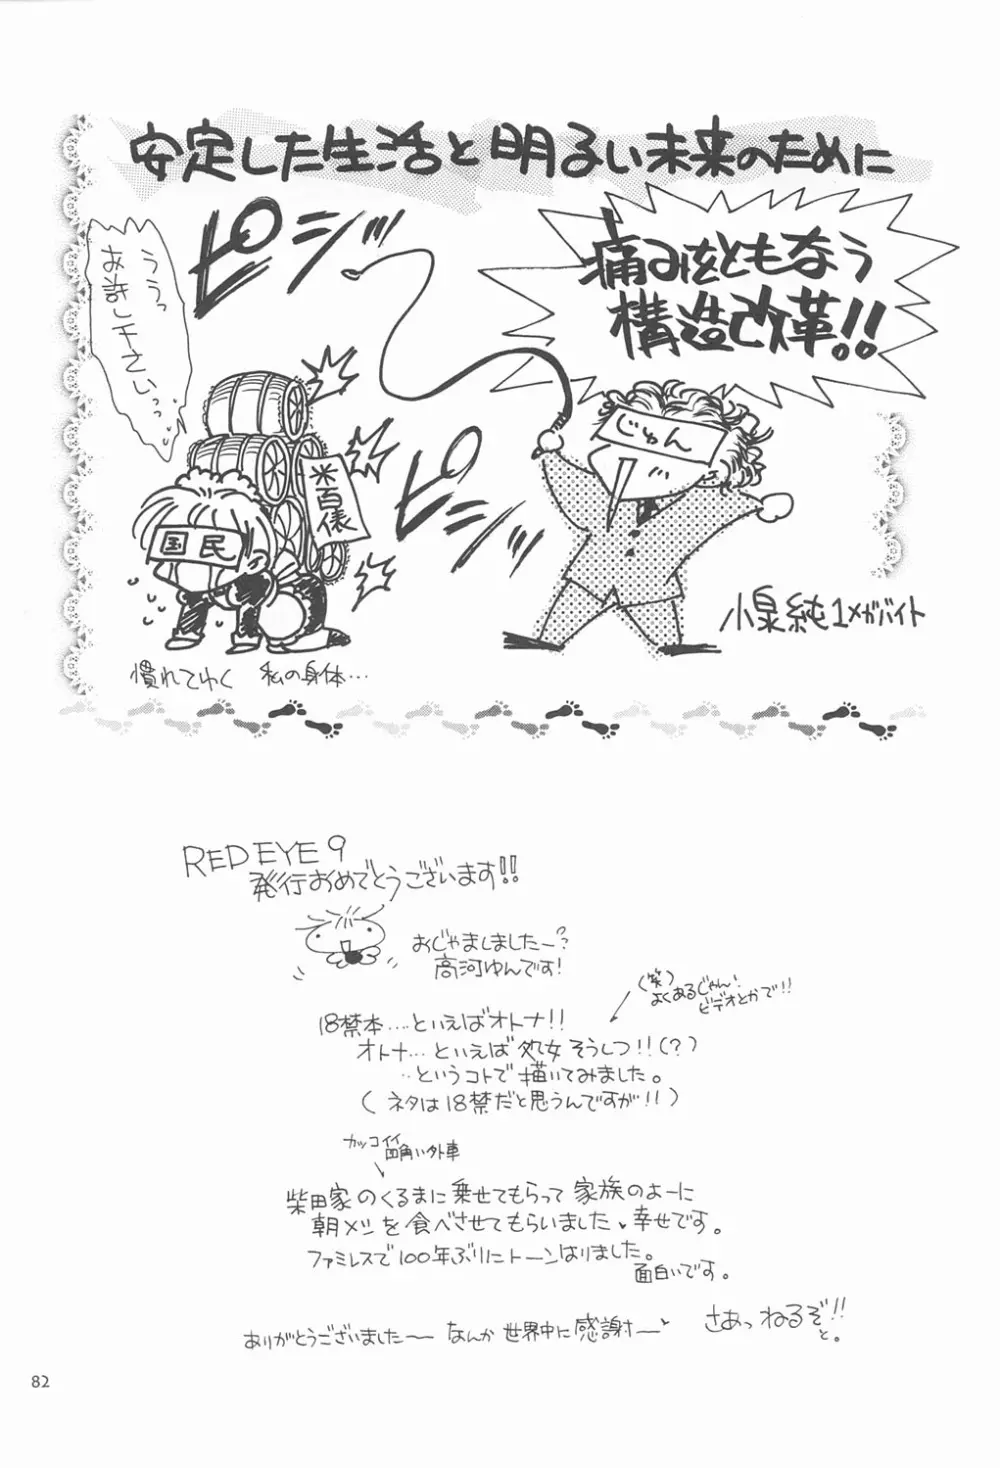 安定した生活と明るい未来のために
痛みをともなう
構造改革!!
ピシッ
ううっ
お許し下さいっっ
じゅん
米百俵
国民
ピシッ
小泉純1メガバイト
慣れてゆく 私の身体…
RED EYE 9
発行おめでとうございます!!
おじゃましましたー?
高河ゆんです!
(笑)
よくあるじゃん!
ビデオとかで!!
18禁本…といえばオトナ!!
オトナ…といえば処女そうしつ!!(?)
…というコトで描いてみました。
(ネタは18禁だと思うんですが!!)
カッコイイ
四角い外車
柴田家のくるまに乗せてもらって家族のよーに
朝メシを食べさせてもらいました、幸せです。
ファミレスで100年ぶりにトーンはりました。
面白いです。
ありがとうございました〜〜 なんか世界中に感謝す〜
さあっねるぞ!!
と。
82